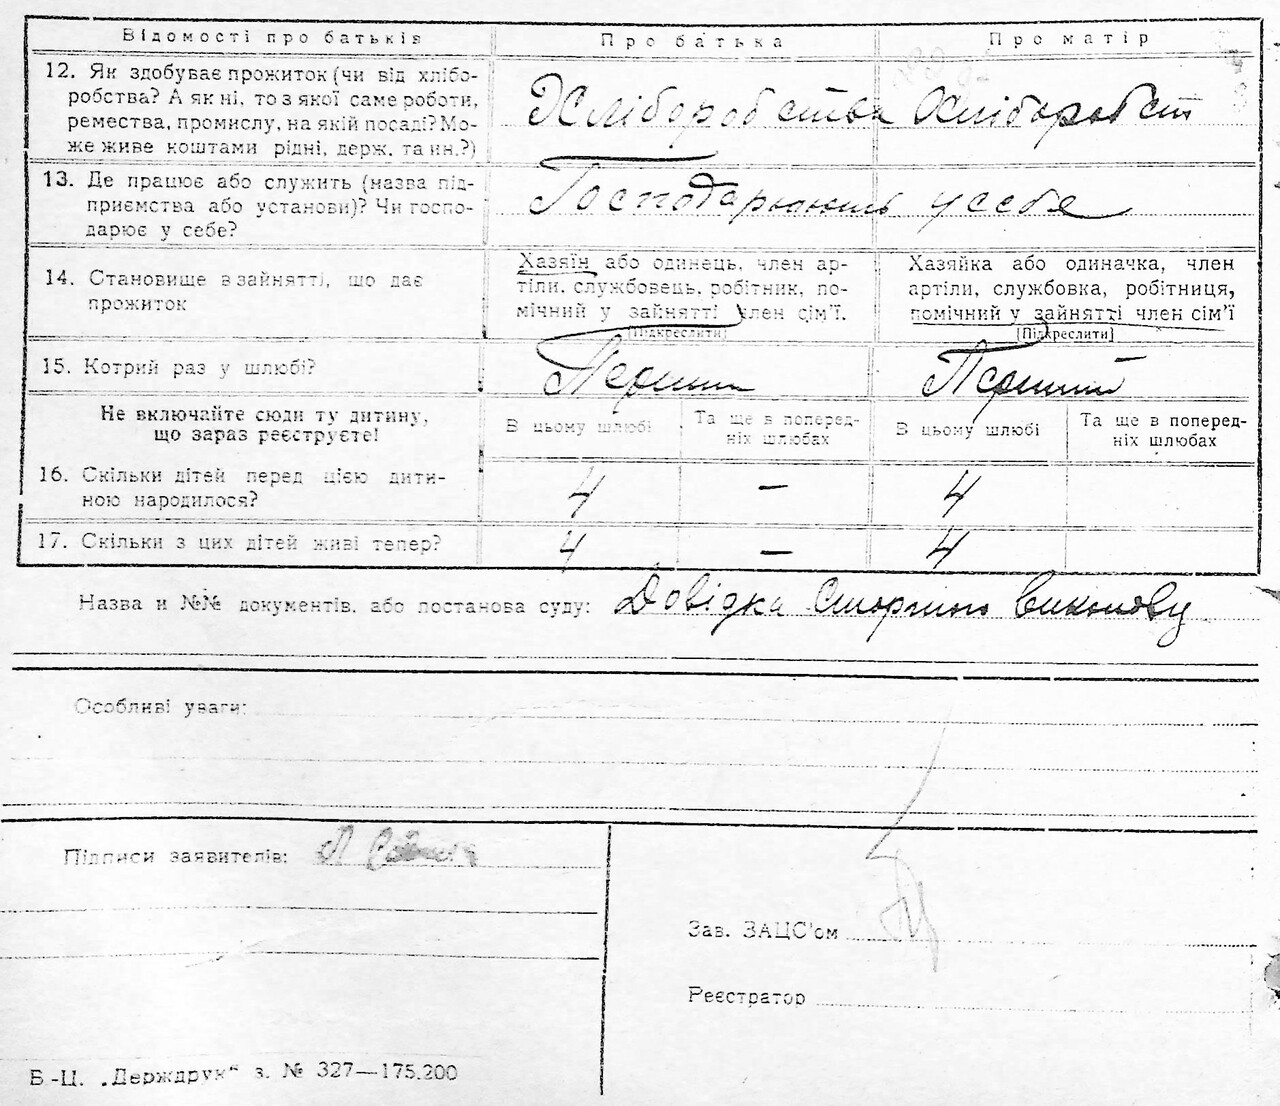 Відомості про батьків
Про батька
Про матір
12. Як здобуває прожиток (чи від хлібо-
робства? А як ні, то з якої саме роботи,
ремества, промислу, на якій посаді? Мо-
же живе коштами рідні, держ. та ин.?)
Хліборобства
Хліборобст
13. Де працює або служить (назва під-
приємства або установи)? Чи госпо-
дарює у себе?
Господарюють у себе
14. Становище в зайнятті, що дає
прожиток
Хазяїн або одинець, член ар-
тіли, службовець, робітник, по-
мічний у зайнятті член сім'ї.
[Підкреслити]
Хазяйка або одиначка, член
артіли, службовка, робітниця,
помічний у зайнятті член сім'ї
[Підкреслити]
15. Котрий раз у шлюбі?
Перший
Перший
Не включайте сюди ту дитину,
що зараз реєструєте!
В цьому шлюбі
Та ще в поперед-
ніх шлюбах
В цьому шлюбі
Та ще в поперед-
ніх шлюбах
16. Скільки дітей перед цією дити-
ною народилося?
4 — 4
17. Скільки з цих дітей живі тепер?
4 — 4
Назва и №№ документів, або постанова суду: Довідка
Особливі уваги:
Підписи заявителів:
Зав. ЗАЦС'ом
Реєстратор
Б-Ц. „Держдрук" з. № 327—175.200